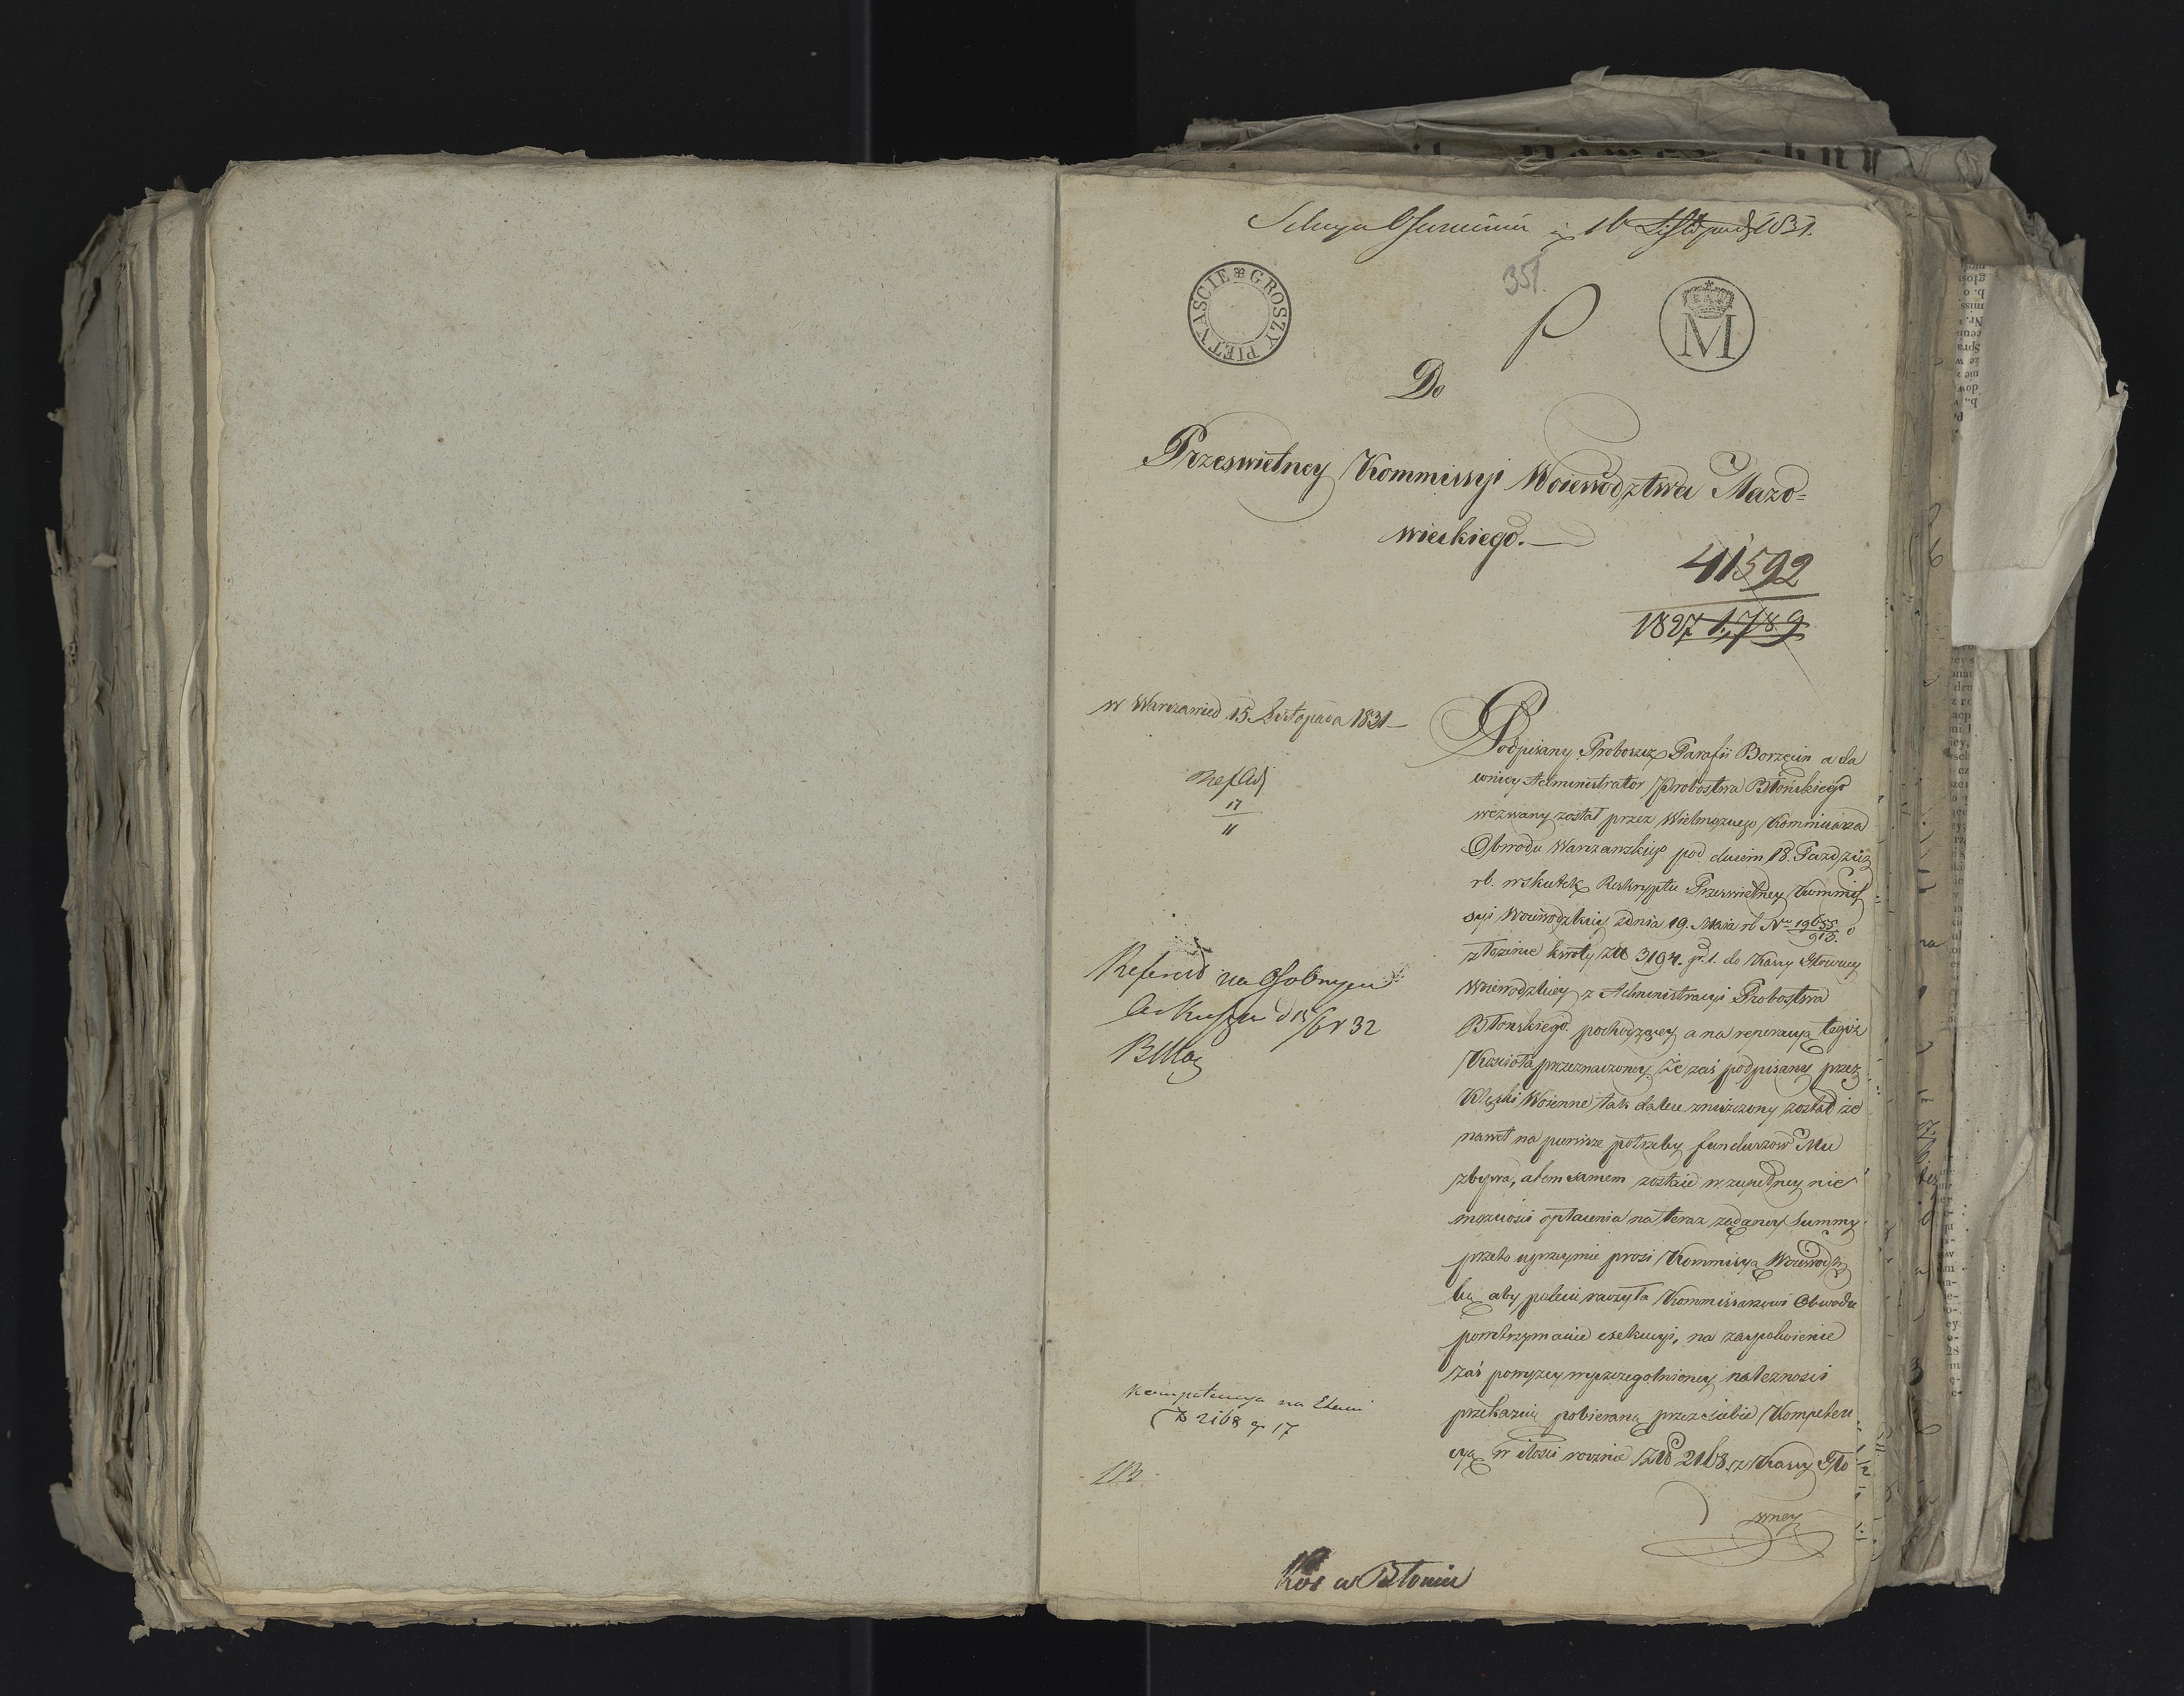 16 Listopad 1831.
351.
GROSZY PIETNASCIE
M
Do
Przeswietney Kommissyi Woiewodztwa Mazo=
wieckiego.
41592
1827 1,789
w Warszawie d 15 Listopada 1831
17
11
Podpisany Proboszcz Parafii Borzęcin a da
wniey Administrator Probostwa Błońskiego
wezwany został przez Wielmożnego Kommissarza
Obwodu Warszawskiego pod dniem 18. Pazdzier
rb. wskutek Reskryptu Przeswietney Kommis
syi Woiewodzkiey z dnia 19. Maia rb No 19655/913. o
złożenie kwoty Złł 3194. gr. 1. do Kassy Głowney
Woiewodzkiey z Administracyi Probostwa
Błonskiego pochodzącey a na reperacyą tegoż
Kościoła przeznaczoney, Że zaś podpisany przez
Klęski Woienne tak dalece zniszczony został że
nawet na pierwsze potrzeby funduszow Mu
zbywa, a tem samem zostaie w zupełney nie
możności opłacenia na teraz żądaney Summy
przeto uprzeymie prosi Kommissyą Woiewodz
ką aby polecić raczyła Kommissarzowi Obwodu
powstrzymanie exekucyi, na zaspokoienie
zaś powyżey wyszczegolnioney należności
przekazuie pobieraną przez siebie Kompeten
cyą w ilości rocznie Złł 2168 z Kassy Gło
wney
Referat na Osobnym
Arkuszu d 15/6 r 32
Kompetencya na Etacie
Zł 2168 gr 17
113.
Kos w Błoniu